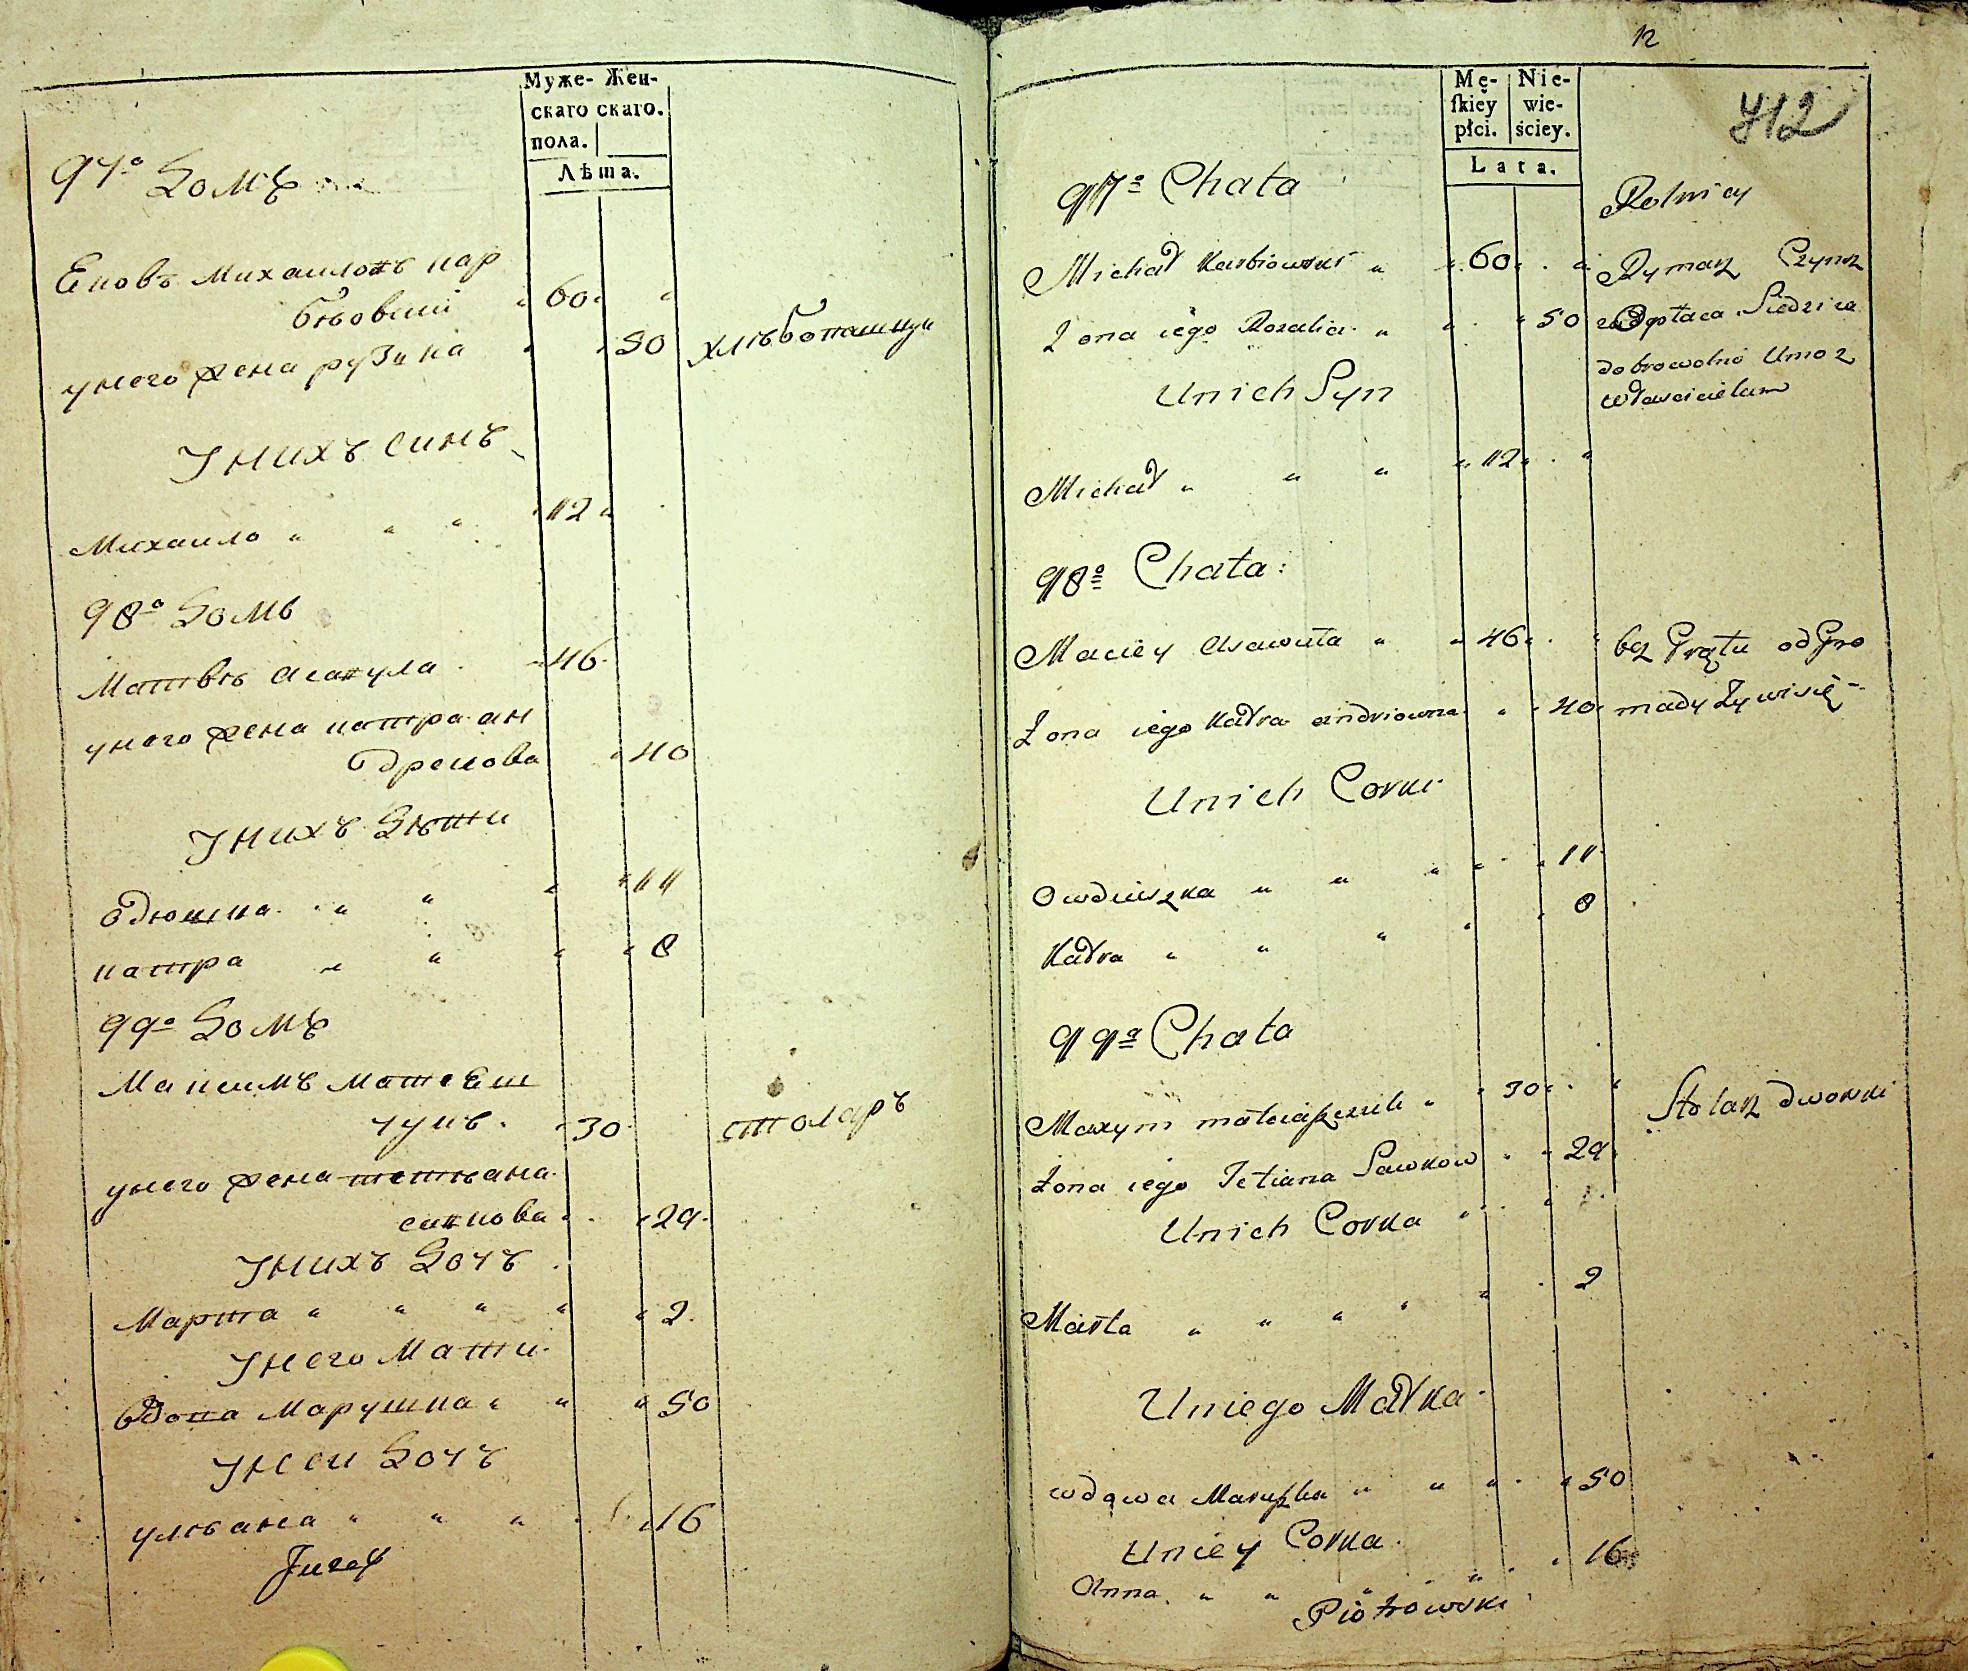 Муже- Жен-
скаго скаго.
пола.
Лѣта.
97º Домъ
Ековъ Михаиловъ кар
бѣовский " 60 " "
унего жена рузика " " 50 хлѣбопашцы
Унихъ синъ
Михаило " " " 12 "
98º Домъ
Матвѣ асавула 46
унего жена катра ан
дреиова " 40
Унихъ Дѣти
вдюшка " " " " 11
катра " " " " 8
99º Домъ
Максимъ матвеи
чукъ 30 столаръ
унего жена тетѣана
савкова " " 29
Унихъ Дочъ
Марта " " " " " 2
Унего Мати
вдова Марушка " " " 50
Унеи Дочъ
улѣана " " " 16
12
712
Mę- Nie-
skiey wie-
płci. ściey.
Lata.
97º Chata
Rolnicy
Michał Karbiowski " " 60 " " Rymarz Czynsz
Zona iego Rozalia " " " 50 opłaca Siedzi za
Unich Syn dobrowolną Umo z
właścicielam
Michał " " " " 12 " "
98º Chata
Maciey Asawuła " " 46 " " bez Grątu od Gro
Zona iego Katra andriowna " " 40 mady żywi się
Unich Corki
Owdiuszka " " " " " 11
Katra " " " " 8
99º Chata
Maxym mateiaszczuk " " 30 " " Stolarz dworski
Zona iego Tetiana Sawkow " " 29
Unich Corka
Marta " " " " " 2
Uniego Matka
wdowa Maruszka " " " " 50
Uniey Corka
Anna " " " " " 16
Piotrowski